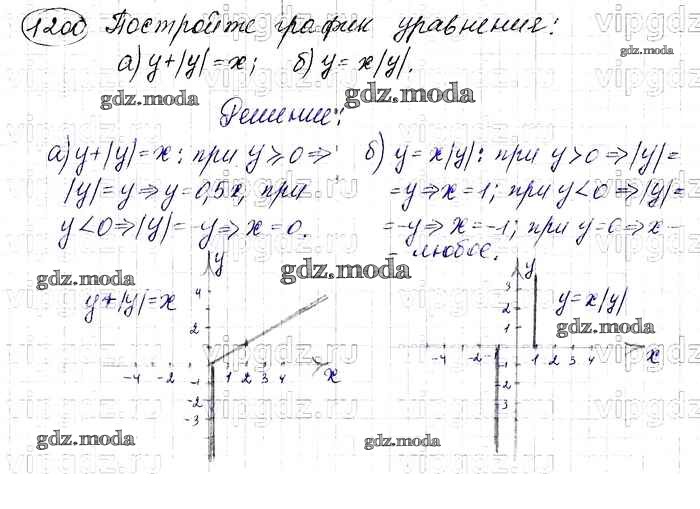 1200 Постройте график уравнения:
а) y+|y|=x; б) y=x|y|.
gdz.moda
Решение:
а) y+|y|=x: при y≥0⇒
|y|=y⇒y=0,5x, при
y<0⇒|y|=-y⇒x=0.
б) y=x|y|: при y>0⇒|y|=
=y⇒x=1; при y<0⇒|y|=
=-y⇒x=-1; при y=0⇒x-
- любое.
gdz.moda
y+|y|=x
y
4
2
-4 -2 1 2 3 4 x
-1
-2
-3
y=x|y|
3
2
1
-4 -2 -1 1 2 3 4 x
-1
-2
-3
gdz.moda
gdz.moda
gdz.moda
gdz.moda
gdz.moda
vipgdz.ru
vipgdz.ru
vipgdz.ru
vipgdz.ru